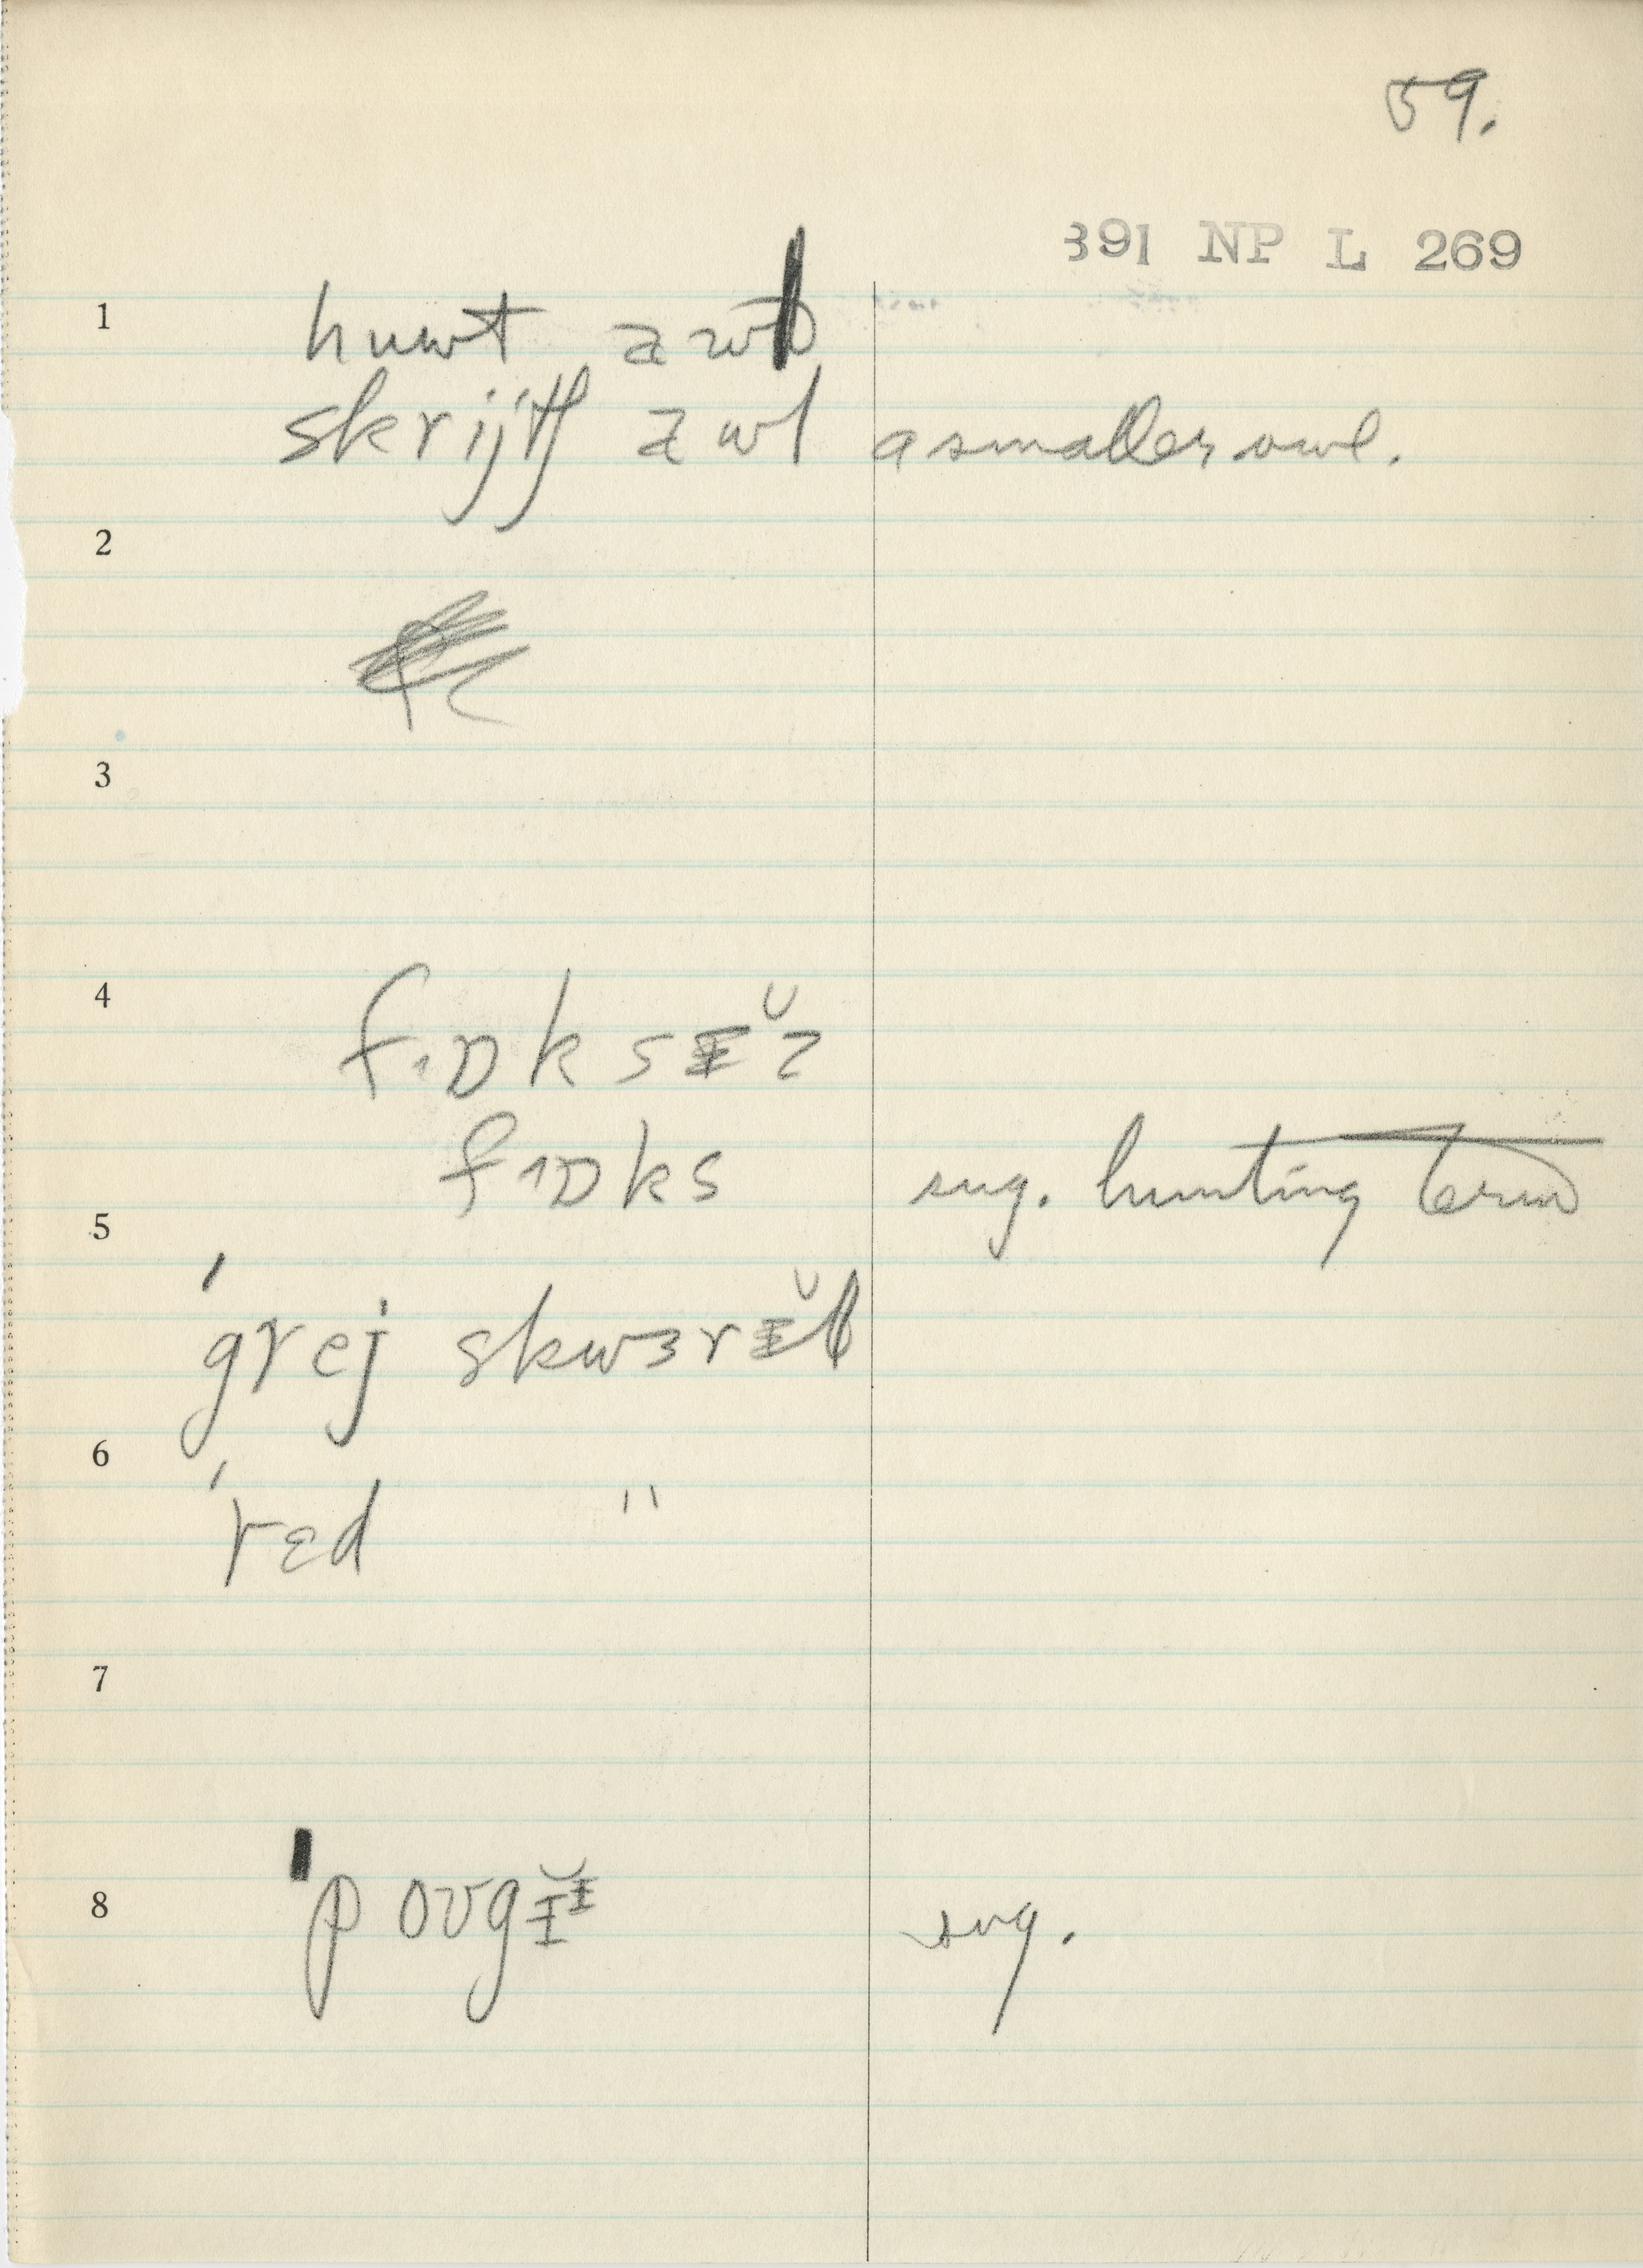 59.
391 NP L 269
1
huwt awɫ
skrijtʃ awl a smaller owl.
2
3
4
fɒksɪ̆z
fɒks sug. hunting term
5
ˈgrej skwɜrɪ̆ɫ
6
ˈrɛd "
7
8
ˈpoʊgɪ̆ sug.